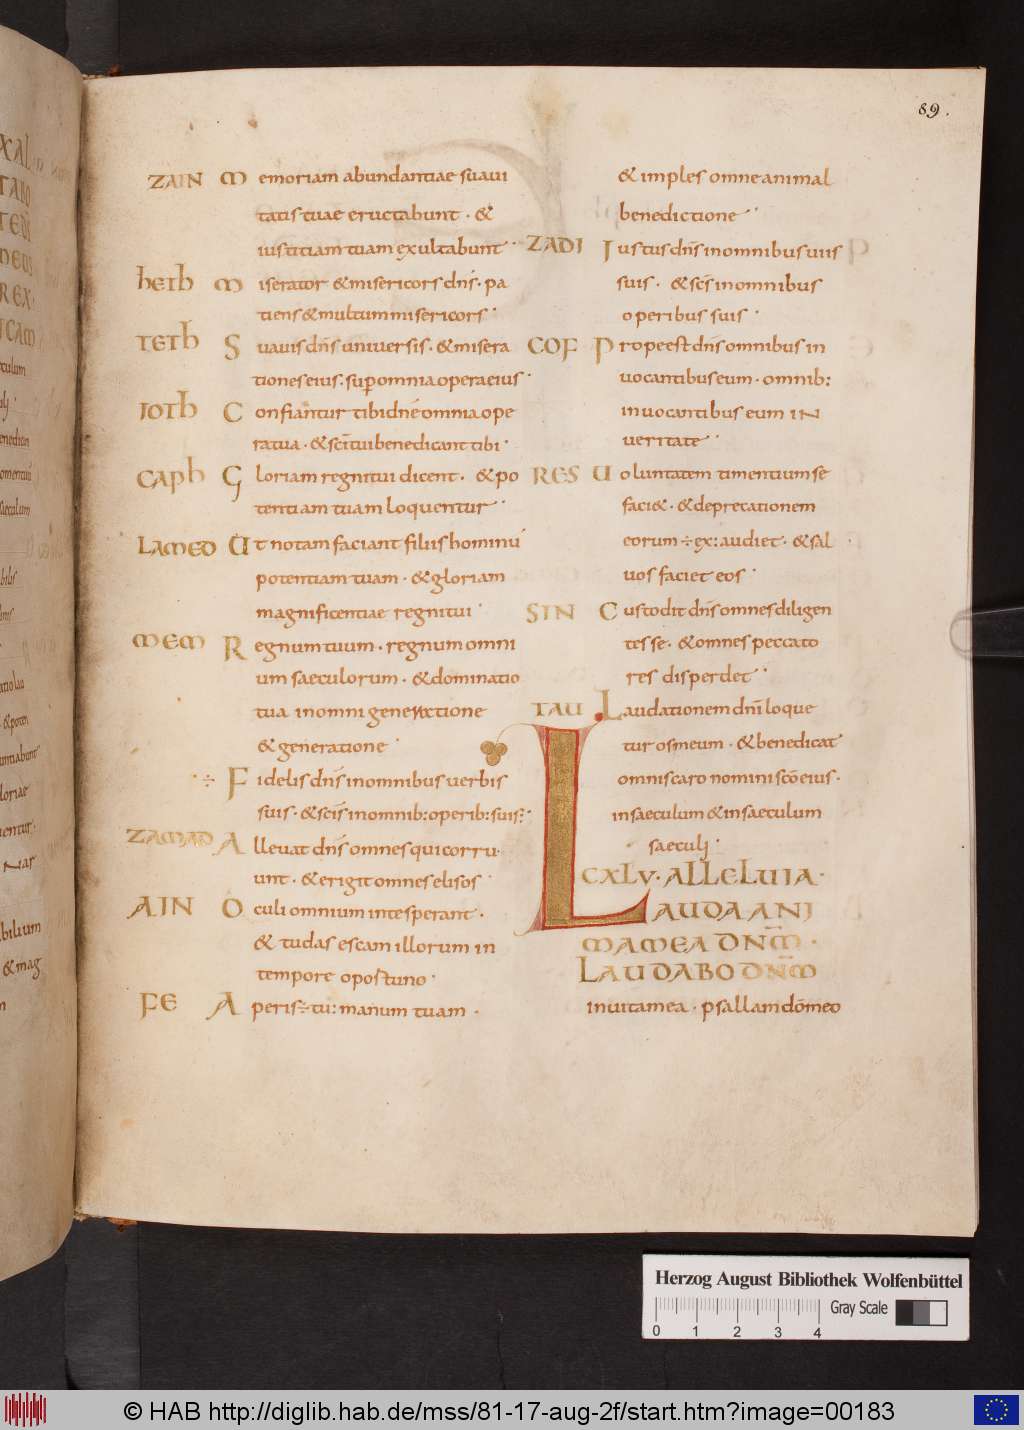 89.
ZAIN Memoriam abundantiae suaui
tatis tuae eructabunt · &
iustitiam tuam exultabunt ·
heth Miserator & misericors dn̄s · pa
tiens & multum misericors ·
TETh Suauis dn̄s uniuersis · & misera
tiones eius : sup omnia opera eius ·
IOTh Confiantur tibi dn̄e omnia ope
ra tua · & sc̄i tui benedicant tibi ·
CAPh Gloriam regni tui dicent · & po
tentiam tuam loquentur ·
LAMED Ut notam faciant filiis hominū
potentiam tuam · & gloriam
magnificentiae regni tui ·
MEM Regnum tuum · regnum omni
um saeculorum · & dominatio
tua in omni generatione
& generatione ·
÷ Fidelis dn̄s in omnibus uerbis
suis · & sc̄s in omnib: operib: suis: ·
ZAMAD Alleuat dn̄s omnes qui corru
unt · & erigit omnes elisos ·
AIN Oculi omnium in te sperant ·
& tu das escam illorum in
tempore oportuno ·
FE Aperis ÷ tu: manum tuam ·
& imples omne animal
benedictione ·
ZADI Iustus dn̄s in omnibus uiis
suis · & sc̄s in omnibus
operibus suis ·
COF Prope est dn̄s omnibus in
uocantibus eum · omnib:
inuocantibus eum IN
ueritate ·
RES Uoluntatem timentium se
faci& · & deprecationem
eorum ÷ ex: audiet · & sal
uos faciet eos ·
SIN Custodit dn̄s omnes diligen
tes se · & omnes peccato
res disperdet ·
TAU Laudationem dn̄i loque
tur os meum · & benedicat
omnis caro nomini sc̄o eius ·
in saeculum & in saeculum
saeculi ·
CXLV · ALLELUIA ·
LAUDA ANI
MA MEA DNM̄ ·
LAUDABO DNM̄
in uita mea · psallam dō meo
Herzog August Bibliothek Wolfenbüttel
0 1 2 3 4 Gray Scale
© HAB http://diglib.hab.de/mss/81-17-aug-2f/start.htm?image=00183